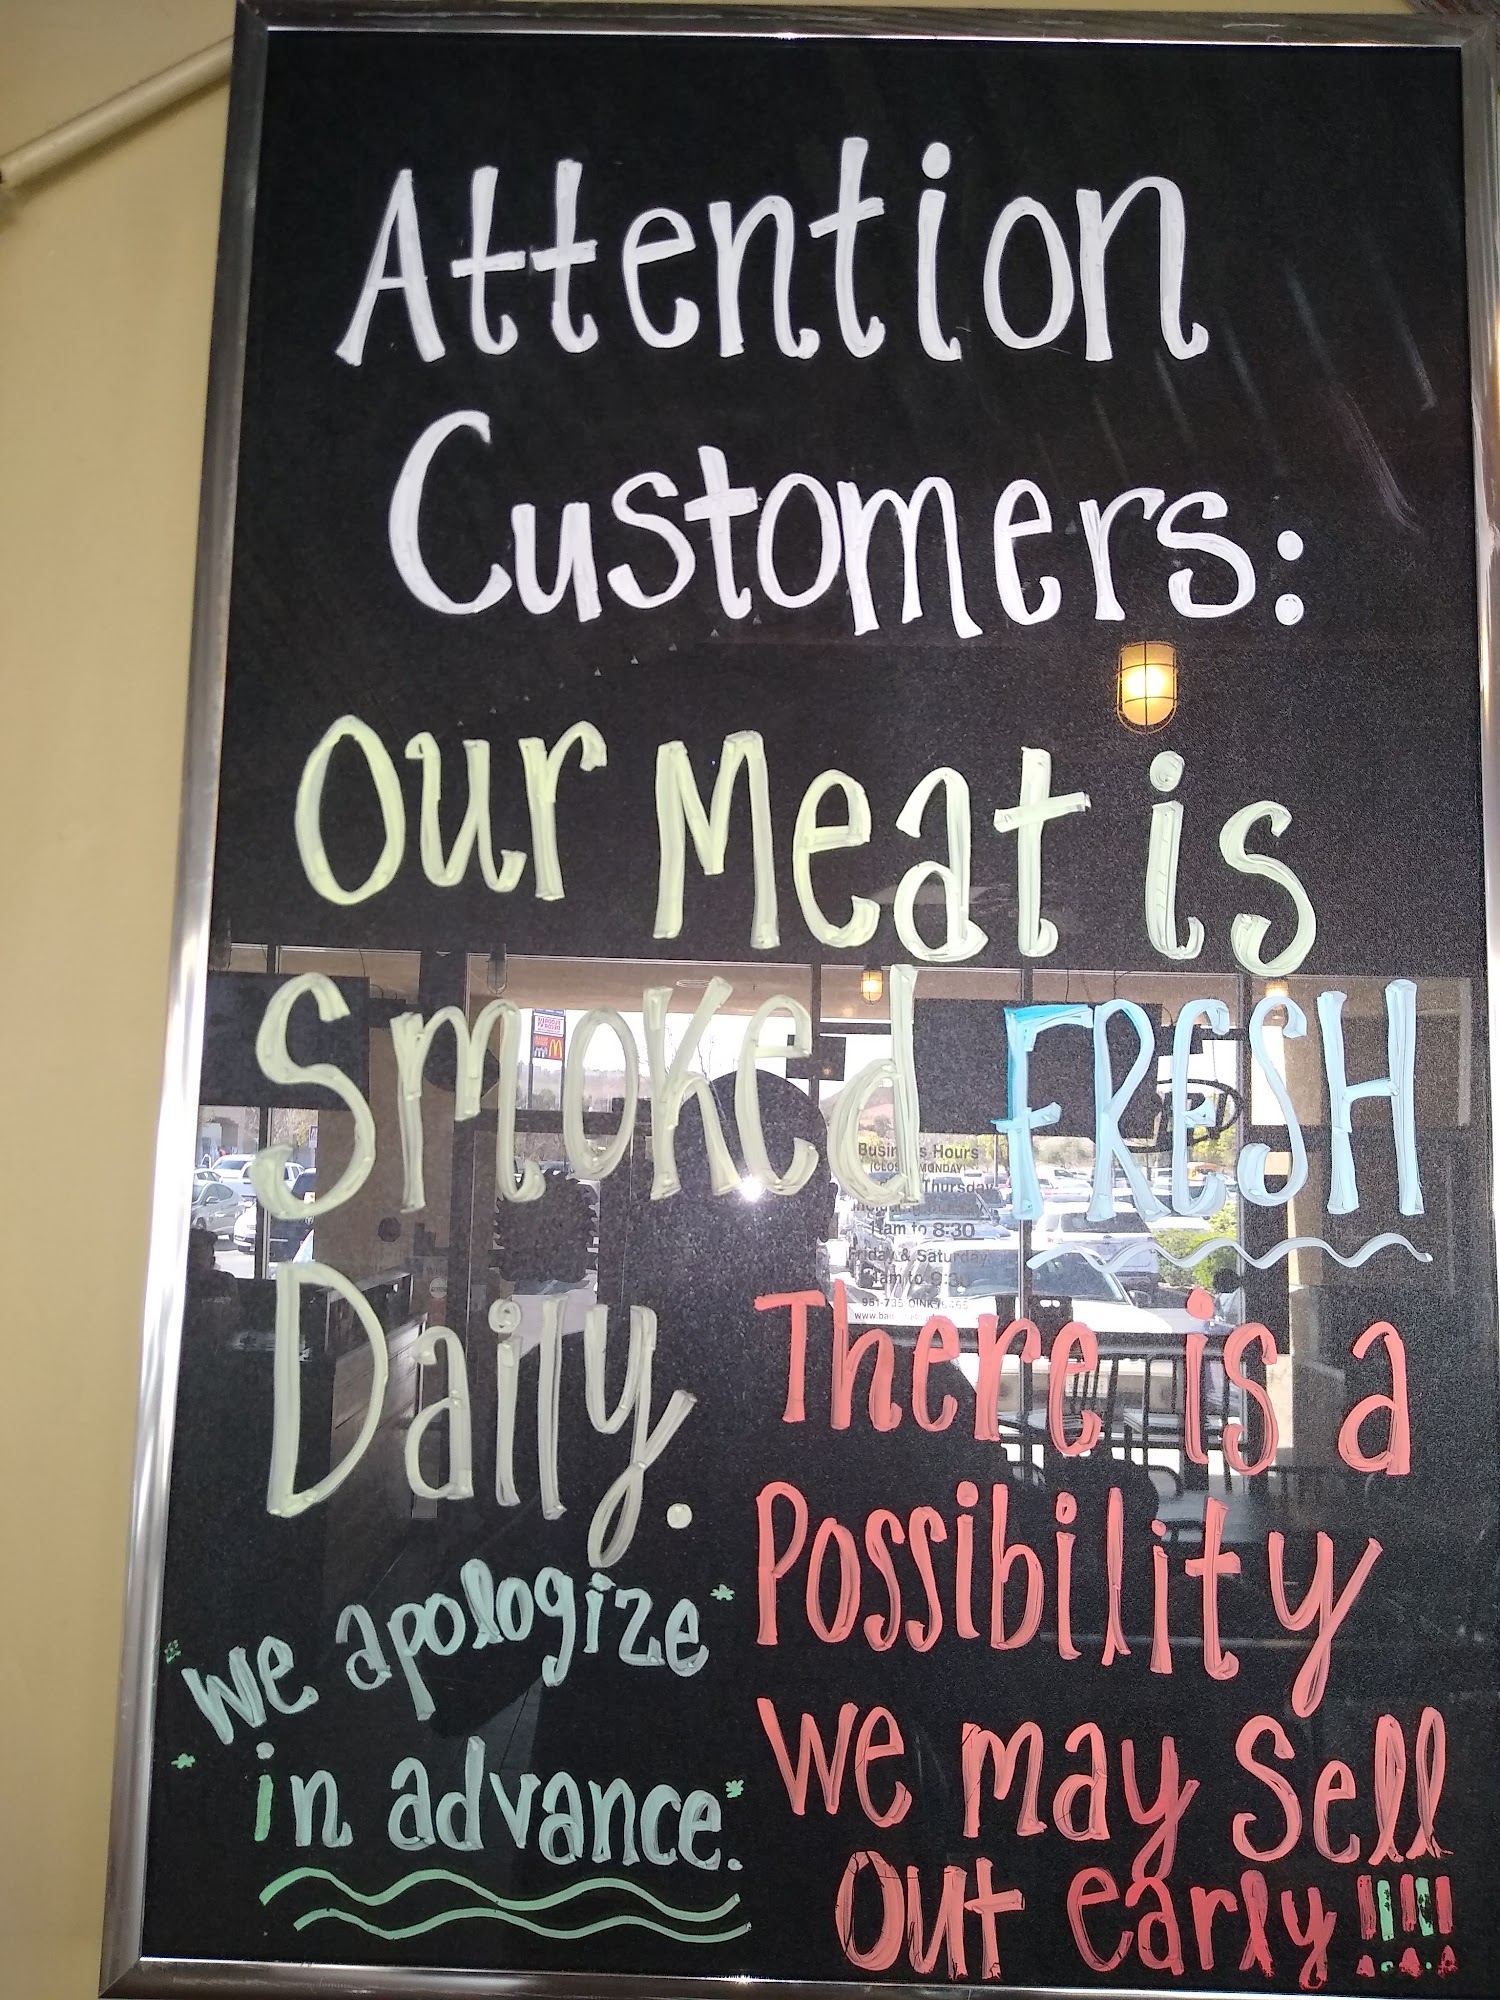 Attention
Customers:
Our Meat is
Smoked FRESH
Daily.
There is a
Possibility
We may Sell
Out early!!!!!
"We apologize"
in advance.
Business Hours
(CLOSED MONDAY)
Thursday
11am to 8:30
Friday & Saturday
11am to 9:30
951-735-OINK